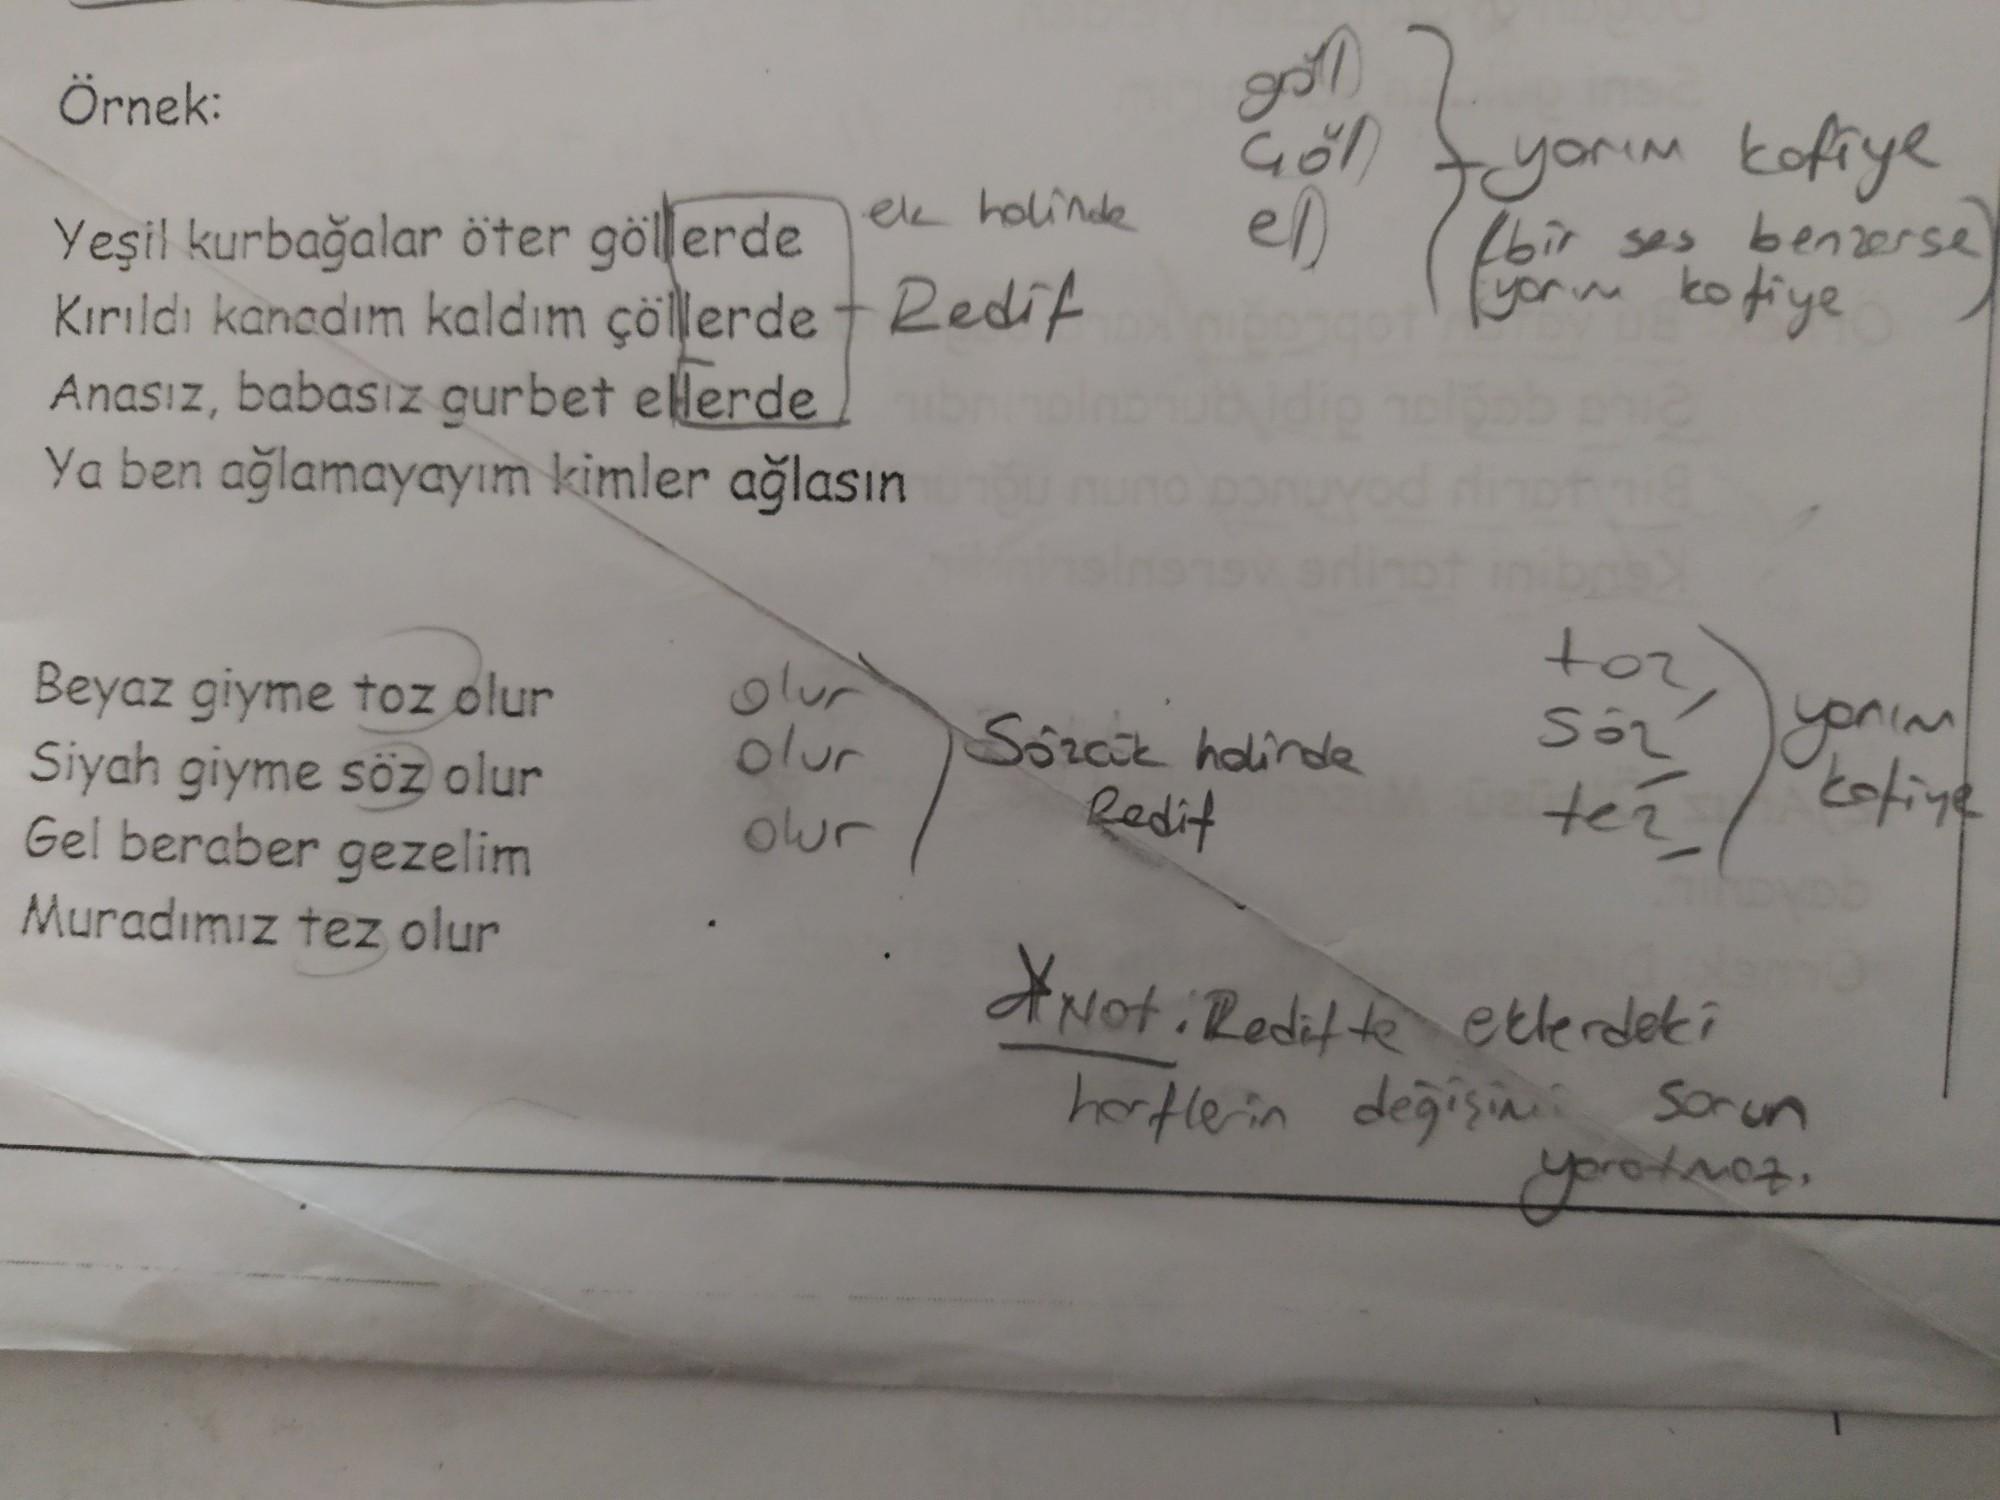 Örnek:
Yeşil kurbağalar öter göllerde
Kırıldı kanadım kaldım çöllerde
Anasız, babasız gurbet ellerde
Ya ben ağlamayayım kimler ağlasın
ek halinde
Redif
göl
çöl
el
yarım kafiye
(bir ses benzerse
yarım kafiye)
Beyaz giyme toz olur
Siyah giyme söz olur
Gel beraber gezelim
Muradımız tez olur
olur
olur
olur
Sözcük halinde
Redif
toz
söz
tez
yarım
kafiye
*Not: Redifte eklerdeki
harflerin değişimi sorun
yaratmaz.